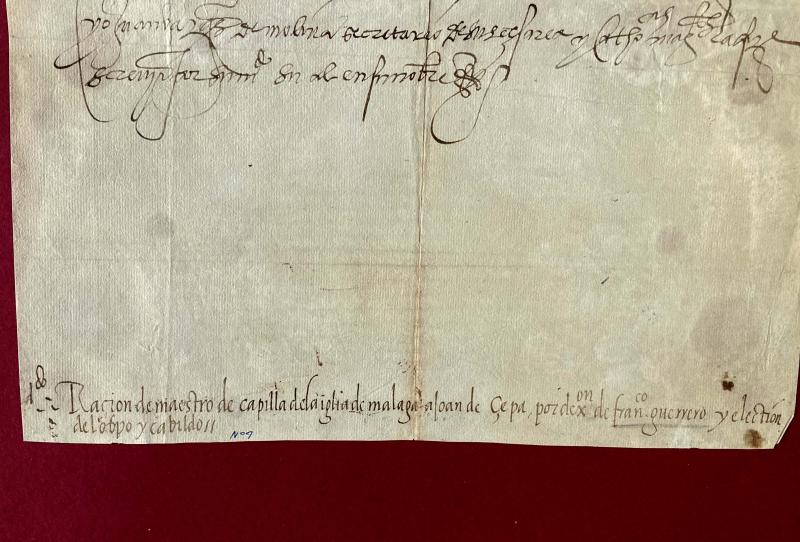 yo Juan vaz̄qz de molina secretario de su cesarea y Catho. mag. la fize
screuir por su mdo en su nonbre
Racion de maestro de capilla dela iglia de malaga a Joan de Çepa, por dexon de franco. guerrero y electión
del obpo y cabildo //
Nº 9